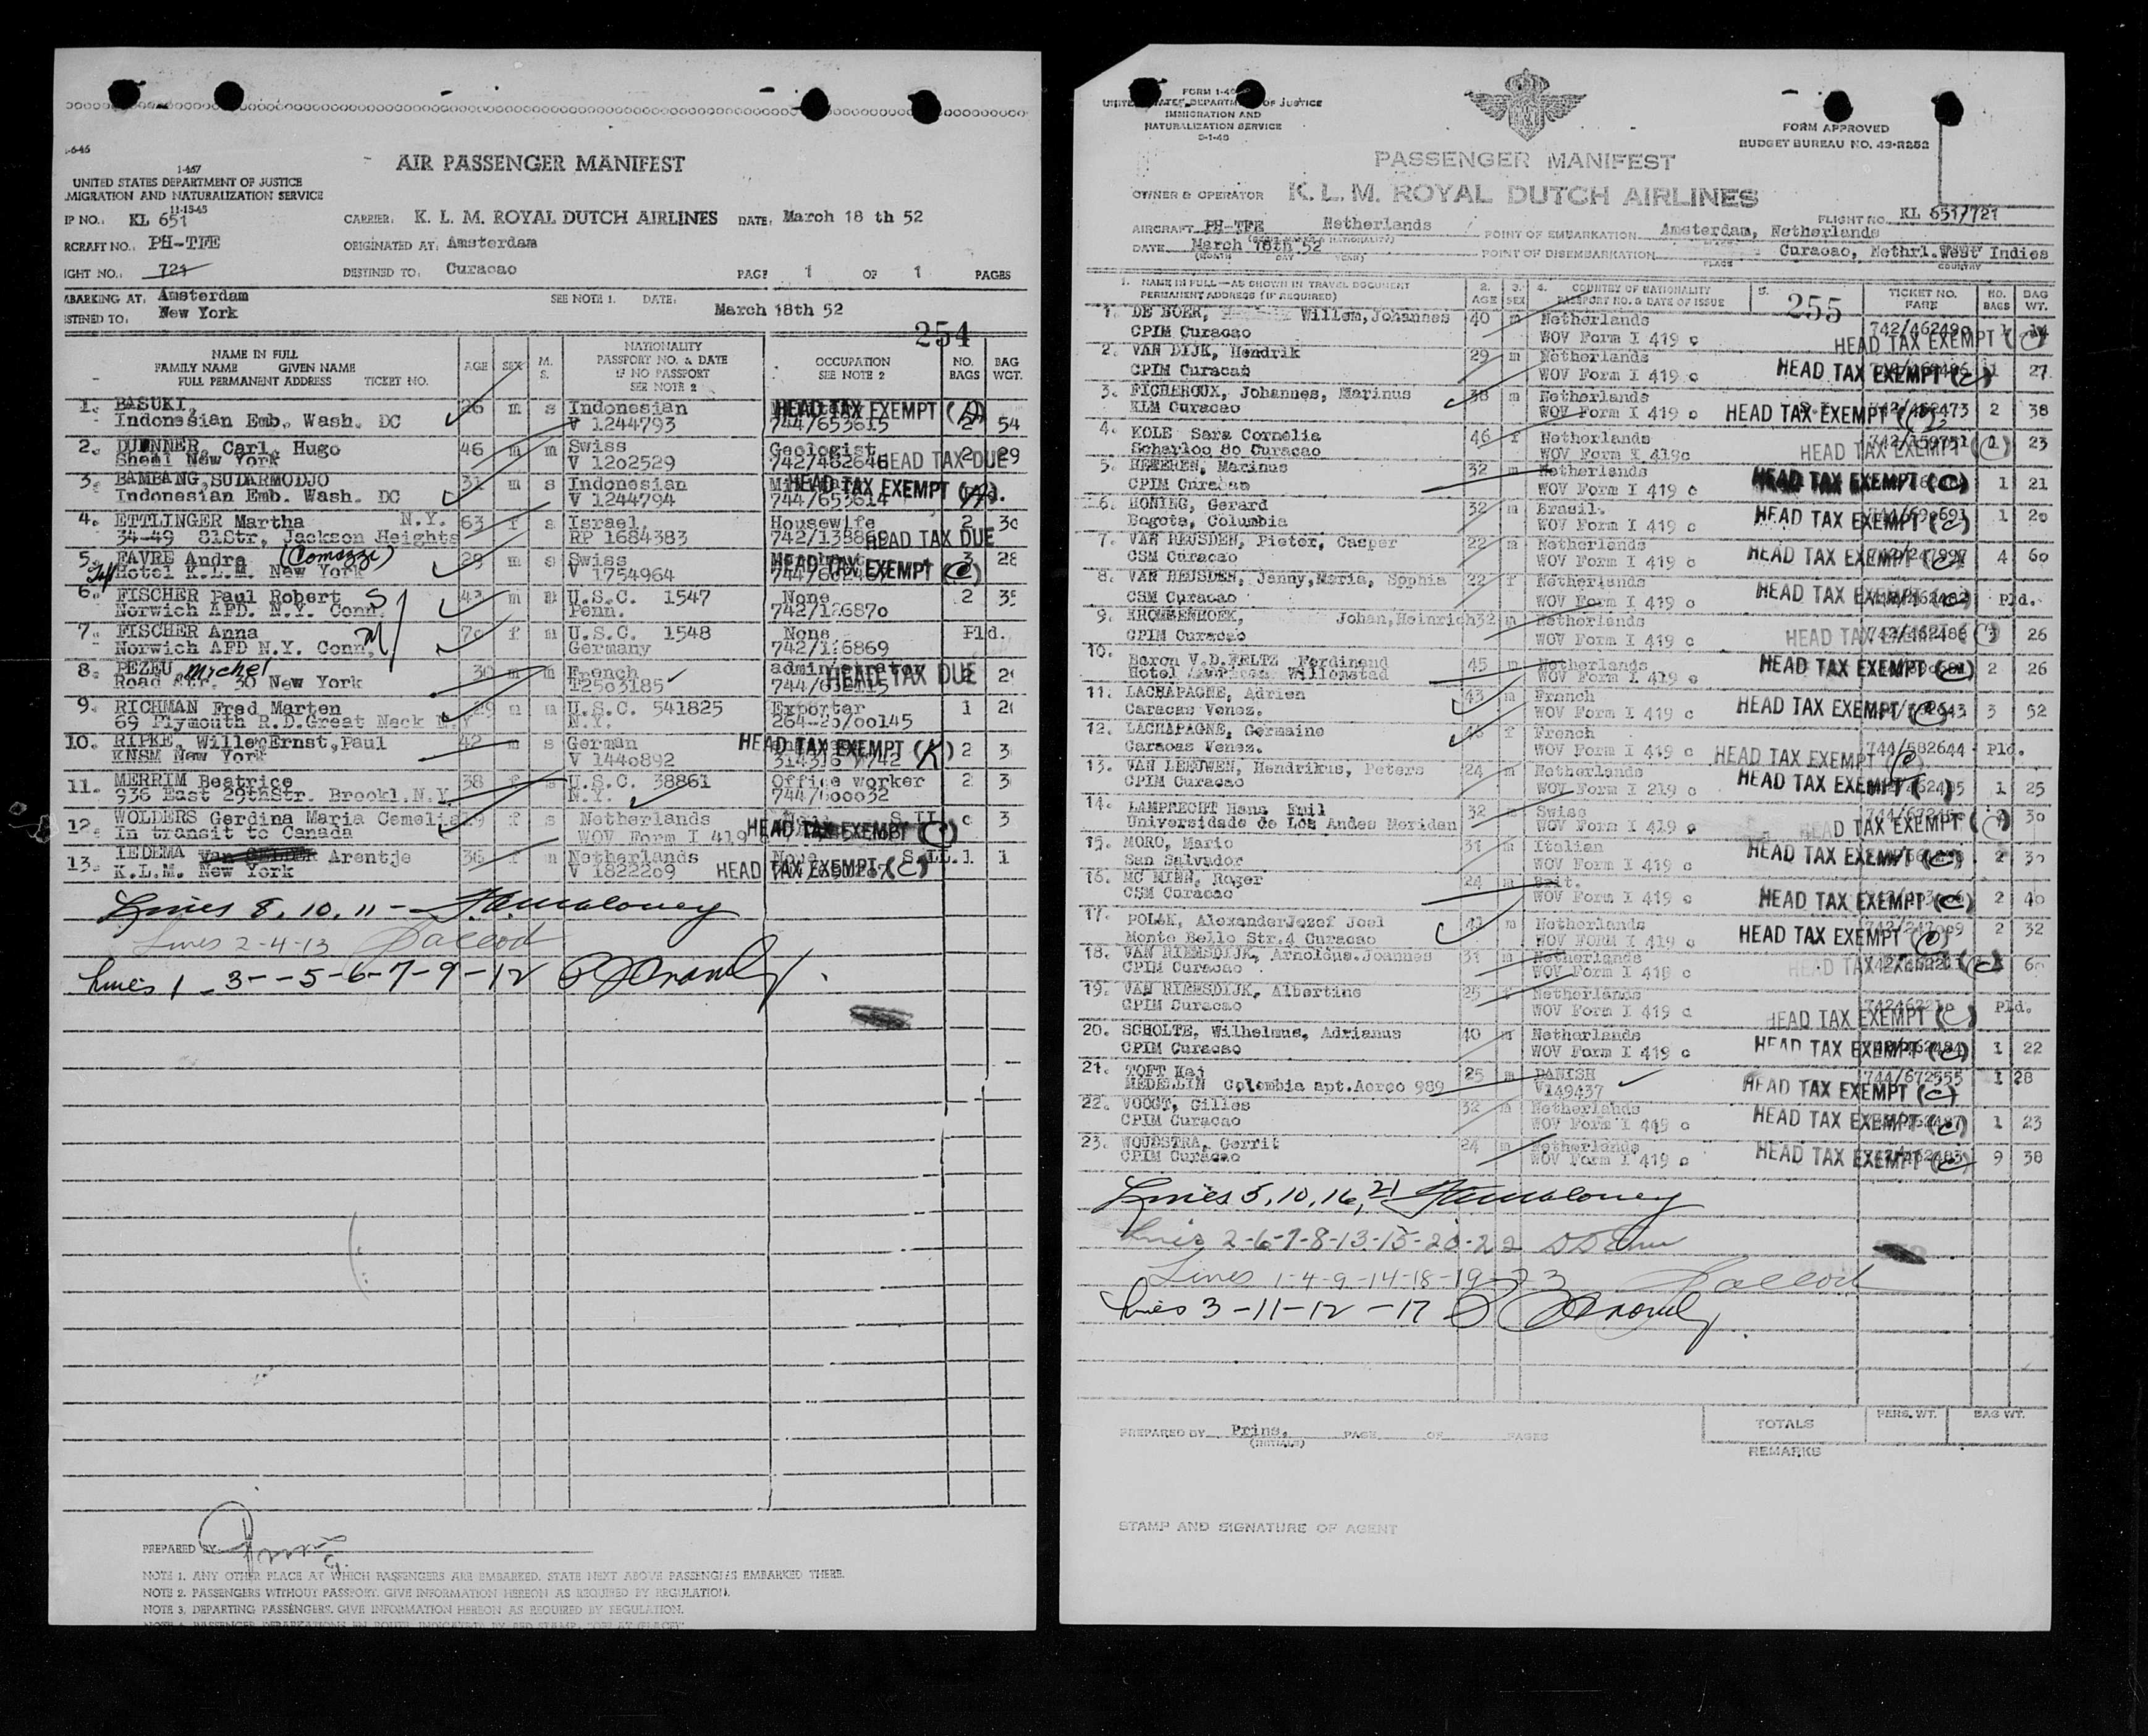 -6-46
1-467
UNITED STATES DEPARTMENT OF JUSTICE
MIGRATION AND NATURALIZATION SERVICE
11-15-45
AIR PASSENGER MANIFEST
IP NO. KL 651
CARRIER: K. L. M. ROYAL DUTCH AIRLINES DATE: March 18 th 52
RCRAFT NO.: PH-TFE ORIGINATED AT: Amsterdam
IGHT NO.: 721 DESTINED TO: Curacao PAGE 1 OF 1 PAGES
MBARKING AT: Amsterdam SEE NOTE 1. DATE: March 18th 52
STENED TO: New York
254
NAME IN FULL
FAMILY NAME GIVEN NAME
FULL PERMANENT ADDRESS TICKET NO.
AGE SEX M. S.
NATIONALITY
PASSPORT NO. & DATE
IF NO PASSPORT
SEE NOTE 2
OCCUPATION
SEE NOTE 2
NO. BAGS
BAG WGT.
1. BASUKI, 26 m s Indonesian HEAD TAX EXEMPT (A)
Indonesian Emb. Wash. DC V 1244793 744/653615 2 54
2. Carl, Hugo 46 m m Swiss Geologist
Shell New York V 1202529 742/462646 HEAD TAX DUE 2 29
3. BAMBANG,SUDARMODJO 31 m s Indonesian HEAD TAX EXEMPT (A).
Indonesian Emb. Wash. DC V 1244794 744/653614
4. ETTLINGER Martha N.Y. 63 f s Israel, Housewife 2 30
34-49 81Str, Jackson Heights RP 1684383 742/138869 HEAD TAX DUE
5. FAVRE Andre (Comazzi) 29 m s Swiss 3 28
Hotel K.L.M. New York V 1754964 HEAD TAX EXEMPT (C)
6. FISCHER Paul Robert S 43 m m U.S.C. 1547 None 2 35
Norwich AFD. N.Y. Conn. Penn. 742/126870
7. FISCHER Anna 70 f m U.S.C. 1548 None Pld.
Norwich AFD N.Y. Conn, M Germany 742/126869
8. PEZEU Michel 30 m m French administrator
Road Str. 30 New York 12503185 HEAD TAX DUE
9. RICHMAN Fred Marten 29 m m U.S.C. 541825 Exporter 1
69 Plymouth R.D.Great Neck N.Y N.Y. 264-20/00145
10. RIPKE, Willem Ernst,Paul 42 m s German HEAD TAX EXEMPT (K) 2 3
KNSM New York V 1440892
11. MERRIM Beatrice 38 f s U.S.C. 38861 Office worker 2 3
936 East 29thStr. Brookl.N.Y. N.Y. 744/600032
12. WOLDERS Gerdina Maria Cornelia f s Netherlands 3
In transit to Canada WOV Form I 419 HEAD TAX EXEMPT (C)
13. IEDEMA Arentje 36 f m Netherlands None S.LL. 1 1
K.L.M. New York V 1822209 HEAD TAX EXEMPT (C)
Lines 8, 10, 11 - Maloney
Lines 2-4-13
Lines 1 - 3 - - 5 - 6 - 7 - 9 - 12
PREPARED BY
NOTE 1. ANY OTHER PLACE AT WHICH PASSENGERS ARE EMBARKED. STATE NEXT ABOVE PASSENGERS EMBARKED THERE.
NOTE 2. PASSENGERS WITHOUT PASSPORT. GIVE INFORMATION HEREON AS REQUIRED BY REGULATION.
NOTE 3. DEPARTING PASSENGERS. GIVE INFORMATION HEREON AS REQUIRED BY REGULATION.
FORM 1-40
UNITED STATES DEPARTMENT OF JUSTICE
IMMIGRATION AND
NATURALIZATION SERVICE
FORM APPROVED
BUDGET BUREAU NO. 43-R252
PASSENGER MANIFEST
OWNER & OPERATOR K. L. M. ROYAL DUTCH AIRLINES
FLIGHT NO. KL 651/721
AIRCRAFT PH-TFE Netherlands POINT OF EMBARKATION Amsterdam, Netherlands
DATE March 18th 52 POINT OF DISEMBARKATION Curacao, Nethrl.West Indies
(MONTH DAY YEAR) PLACE COUNTRY
1. NAME IN FULL—AS SHOWN IN TRAVEL DOCUMENT
PERMANENT ADDRESS (IF REQUIRED)
2. AGE 3. SEX
4. COUNTRY OF NATIONALITY
PASSPORT NO. & DATE OF ISSUE
5. 255
TICKET NO.
FARE
NO. BAGS
BAG WT.
1. DE BOER, Willem,Johannes 40 m Netherlands 742/462490 1 14
CPIM Curacao WOV Form I 419 c HEAD TAX EXEMPT (C)
2. VAN DIJK, Hendrik 29 m Netherlands 1 27
CPIM Curacao WOV Form I 419 c HEAD TAX EXEMPT (C)
3. FICHEROUX, Johannes, Marinus 38 m Netherlands 2 38
KLM Curacao WOV Form I 419 c HEAD TAX EXEMPT (C)
4. KOLE Sara Cornelia 46 f Netherlands 742/159751 1 23
Scharloo 80 Curacao WOV Form I 419c HEAD TAX EXEMPT
5. HEKEREN, Marinus 32 m Netherlands 1 21
CPIM Curacao WOV Form I 419 c HEAD TAX EXEMPT (C)
6. HONING, Gerard 32 m Brasil. 1 20
Bogota, Columbia WOV Form I 419 c HEAD TAX EXEMPT (C)
7. VAN REUSDEN, Pieter, Casper 22 m Netherlands 4 60
CSM Curacao WOV Form I 419 c HEAD TAX EXEMPT (C)
8. VAN REUSDEN, Janny,Maria, Sophia 22 f Netherlands
CSM Curacao WOV Form I 419 c HEAD TAX EXEMPT (C) Pld.
9. Johan,Heinrich 32 m Netherlands
CPIM Curacao WOV Form I 419 c HEAD TAX EXEMPT 3 26
10. Baron V.D.FELTZ Ferdinand 45 m Netherlands HEAD TAX EXEMPT (C) 2 26
Hotel Willemstad WOV Form I 419 c
11. LACHAPAGNE, Adrien 43 m French HEAD TAX EXEMPT (C) 3 52
Caracas Venez. WOV Form I 419 c
12. LACHAPAGNE, Germaine f French 744/682644 Pld.
Caracas Venez. WOV Form I 419 c HEAD TAX EXEMPT (C)
13. VAN LEEUWEN, Hendrikus, Peters 24 m Netherlands HEAD TAX EXEMPT ( ) 1 25
CPIM Curacao WOV Form I 219 c
14. LAMPRECHT Hans Emil 32 m Swiss 30
Universidade de Los Andes Meridan WOV Form I 419 c HEAD TAX EXEMPT
15. MORO, Mario 31 m Italian 2 30
San Salvador WOV Form I 419 c HEAD TAX EXEMPT (C)
16. MC MINN, Roger 24 m Brit. 2 40
CSM Curacao WOV Form I 419 c HEAD TAX EXEMPT (C)
17. POLAK, AlexanderJozef Joel 41 m Netherlands 2 32
Monte Bello Str.4 Curacao WOV FORM I 419 c HEAD TAX EXEMPT (C)
18. VAN RIEMSDIJK, Arnoldus.Joannes 31 m Netherlands
CPIM Curacao WOV Form I 419 c HEAD TAX EXEMPT (C)
19. VAN RIEMSDIJK, Albertine 25 f Netherlands Pld.
CPIM Curacao WOV Form I 419 c HEAD TAX EXEMPT (C)
20. SCHOLTE, Wilhelmus, Adrianus 40 m Netherlands 1 22
CPIM Curacao WOV Form I 419 c HEAD TAX EXEMPT (C)
21. TOFT Kaj 25 m DANISH 744/672555 1 28
MEDELLIN Colombia apt.Aereo 989 V149437 HEAD TAX EXEMPT (C)
22. VOOGT, Gilles 32 m Netherlands 1 23
CPIM Curacao WOV Form I 419 c HEAD TAX EXEMPT (C)
23. WOUDSTRA, Gerrit 24 m Netherlands 9 38
CPIM Curacao WOV Form I 419 c HEAD TAX EXEMPT (C)
Lines 5, 10, 16, 21 Maloney
Lines 2-6-7-8-13-15-20-22
Lines 1-4-9-14-18-19-23
Lines 3-11-12-17
PREPARED BY Prins. PAGE OF PAGES
(INITIALS)
TOTALS PERS. WT. BAG WT.
REMARKS
STAMP AND SIGNATURE OF AGENT